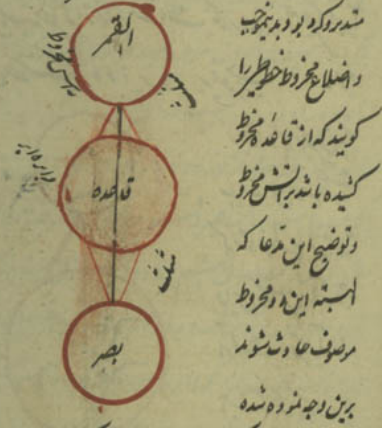 مستدیر و کره بود و بدینموجب
و اضلاع مخروط خطوط را
کویند که از قاعده مخروط
کشیده باشد براس مخروط
و توضیح این مدعا که
البته این دو مخروط
موصوف حادث شوند
برین وجه نموده شده
القمر
قاعده
بصر